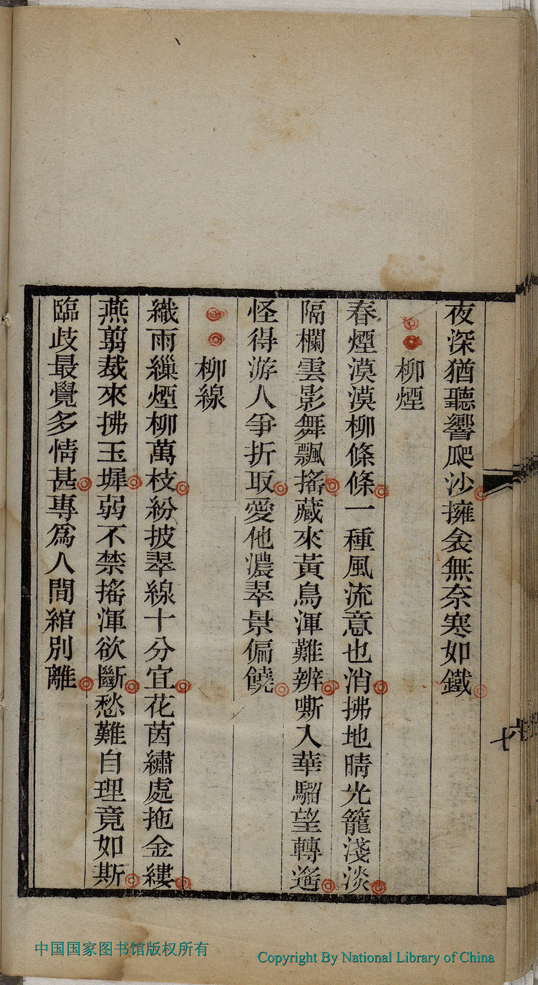 夜深猶聽響爬沙擁衾無奈寒如鐵
柳煙
春煙漠漠柳條條一種風流意也消拂地晴光籠淺淡
隔欄雲影舞飄搖藏來黃鳥渾難辨嘶入華騮望轉遙
怪得游人爭折取愛他濃翠景偏饒
柳線
織雨繅煙柳萬枝紛披翠線十分宜花茵繡處拖金縷
燕剪裁來拂玉墀弱不禁搖渾欲斷愁難自理竟如斯
臨歧最覺多情甚專為人間綰別離
七
中国国家图书馆版权所有
Copyright By National Library of China